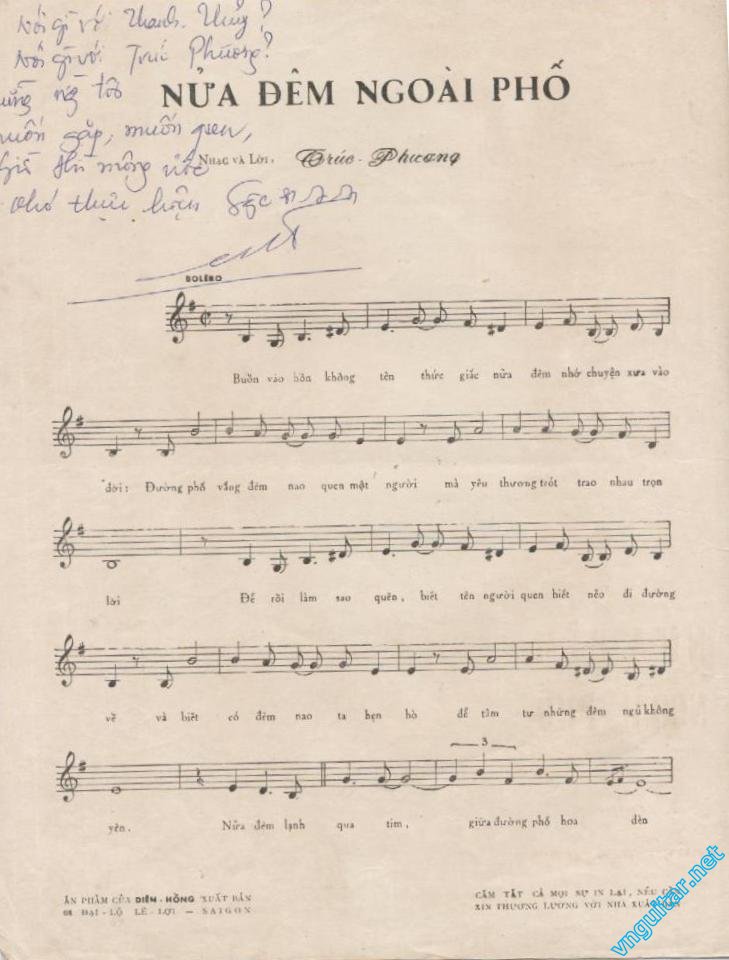 Nói gì với Thanh-Thúy?
Nói gì với Trúc Phương?
tôi
muốn gặp, muốn quen,
NỬA ĐÊM NGOÀI PHỐ
NHẠC và LỜI: Trúc-Phương
BOLÉRO
Buồn vào hồn không tên thức giấc nửa đêm nhớ chuyện xưa vào
đời: Đường phố vắng đêm nao quen một người mà yêu thương trót trao nhau trọn
lời Để rồi làm sao quên, biết tên người quen biết nẻo đi đường
về và biết có đêm nao ta hẹn hò để tâm tư những đêm ngủ không
yên. Nửa đêm lạnh qua tim, giữa đường phố hoa đèn
3
ẤN PHẨM CỦA DIÊN-HỒNG XUẤT BẢN
61 ĐẠI-LỘ LÊ-LỢI – SAIGON
CẤM TẤT CẢ MỌI SỰ IN LẠI, NẾU CẦN
XIN THƯƠNG LƯỢNG VỚI NHÀ XUẤT BẢN
vnguitar.net